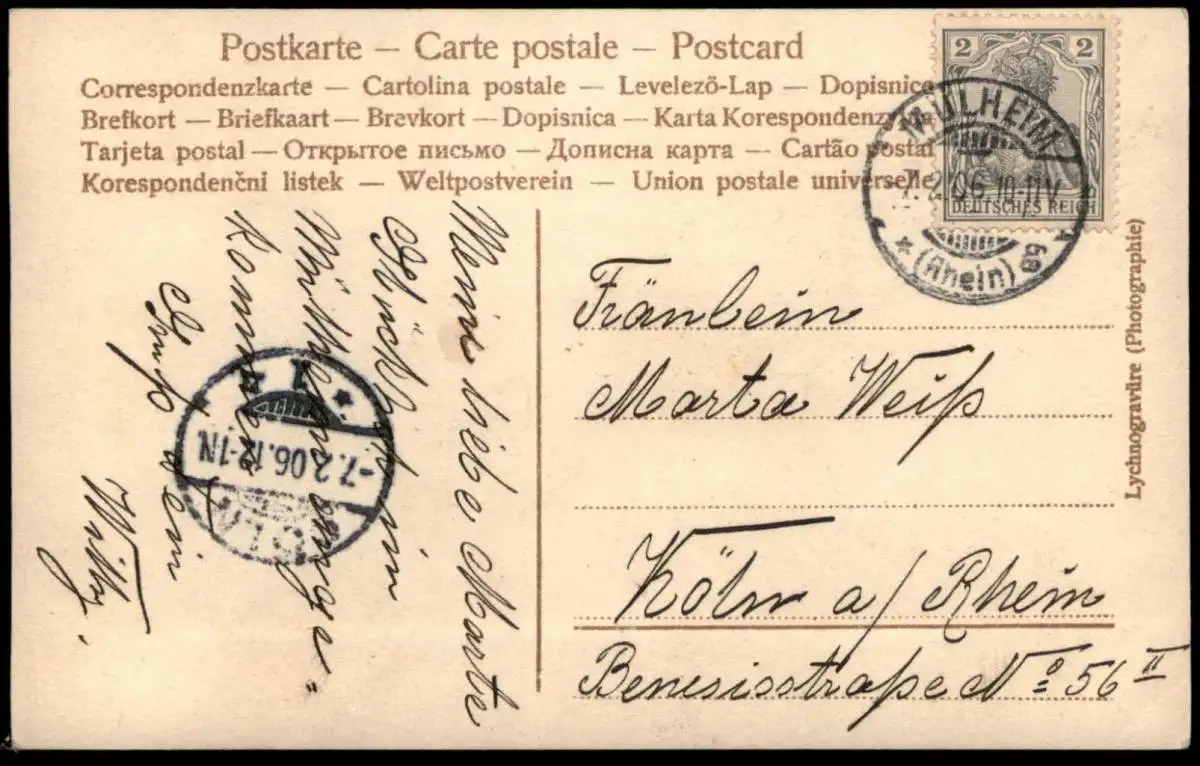 Postkarte — Carte postale — Postcard
Correspondenzkarte — Cartolina postale — Levelező-Lap — Dopisnica
Brefkort — Briefkaart — Brevkort — Dopisnica — Karta Korespondenzyjna
Tarjeta postal — Открытое письмо — Дописна карта — Cartão postal
Korespondenčni listek — Weltpostverein — Union postale universelle
2 2
DEUTSCHES REICH
MÜLHEIM
7.2.06.10-11V.
* (Rhein) *
Fräulein
Marta Weiß
Köln a/Rhein
Benesisstraße No 56 II
Lychnogravüre (Photographie)
Meine liebe Marte
Glück
kommen
Gruß dein
Willy.
-7.2.06.12-1N